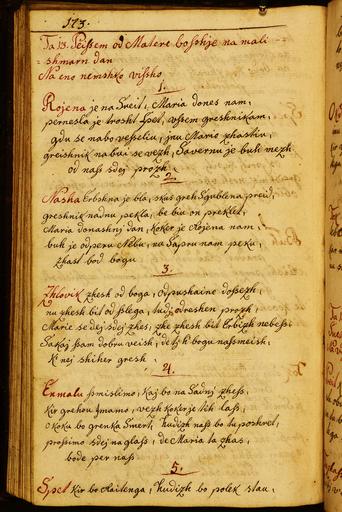 173.
Ta 13. Peissem od Matere boshje na mali
shmarn dan
Na eno nemshko visho
1.
Rojena je na Sveit, Maria dones nam,
pernesla je trosht spet, vssem greshnikam,
gdu se nabo vesseliu, jnu Mario zhastiu,
greishnik nabui se vezh, Savernu je buh mezh
od nass sdej prozh.
2.
Nasha Erbshna je bla, skus greh Sgublena preid,
greshnik nadnu pekla, be biu on preklet,
Maria donashni dan, koker je Rojena nam,
buh je odperu Nebu, nu Sapru nam peku,
zhast bod bogu
3.
Zhlovik zhesh od boga, odpushaine dossezh,
nu zhesh bit od slega, tudj odreshen prozh,
Marie se dej sdej zhes, zhe zhesh bit Erbizh nebess
Sakaj ssam dobru veish, de ti k bogu nassmeish,
K nej shiher gresh
4.
Ermalu smislimo, Kaj bo na Sadni zhess,
Kir grehou jmamo, vezh koker je teh lass,
O koku bo grenka Smert, hudizh nass bo tu poshret,
prossimo sdej na glass, de Maria ta zhas,
bode per nass
5.
Spet kir bo Raitenga, hudizh bo polek stau,